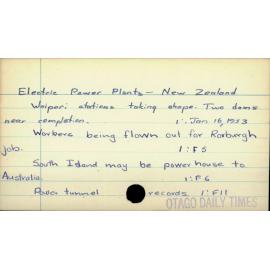 Electric Power Plants - New Zealand
Waipori stations taking shape. Two dams
near completion. 1: Jan 16, 1953
Workers being flown out for Roxburgh
job. 1:F5
South Island may be powerhouse to
Australia. 1:F6
Power tunnel records 1:F11
OTAGO DAILY TIMES